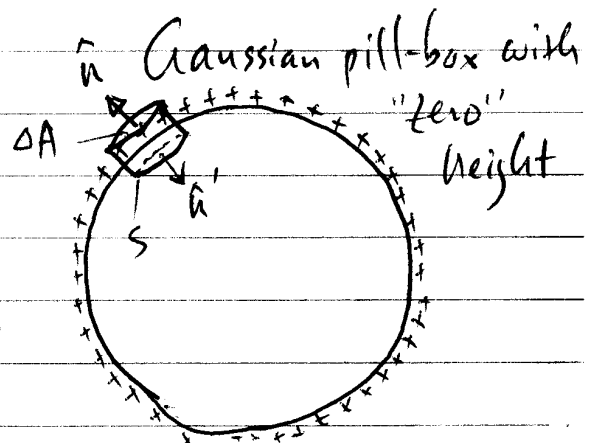 n̂ Gaussian pill-box with
"zero"
ΔA
height
n̂'
S